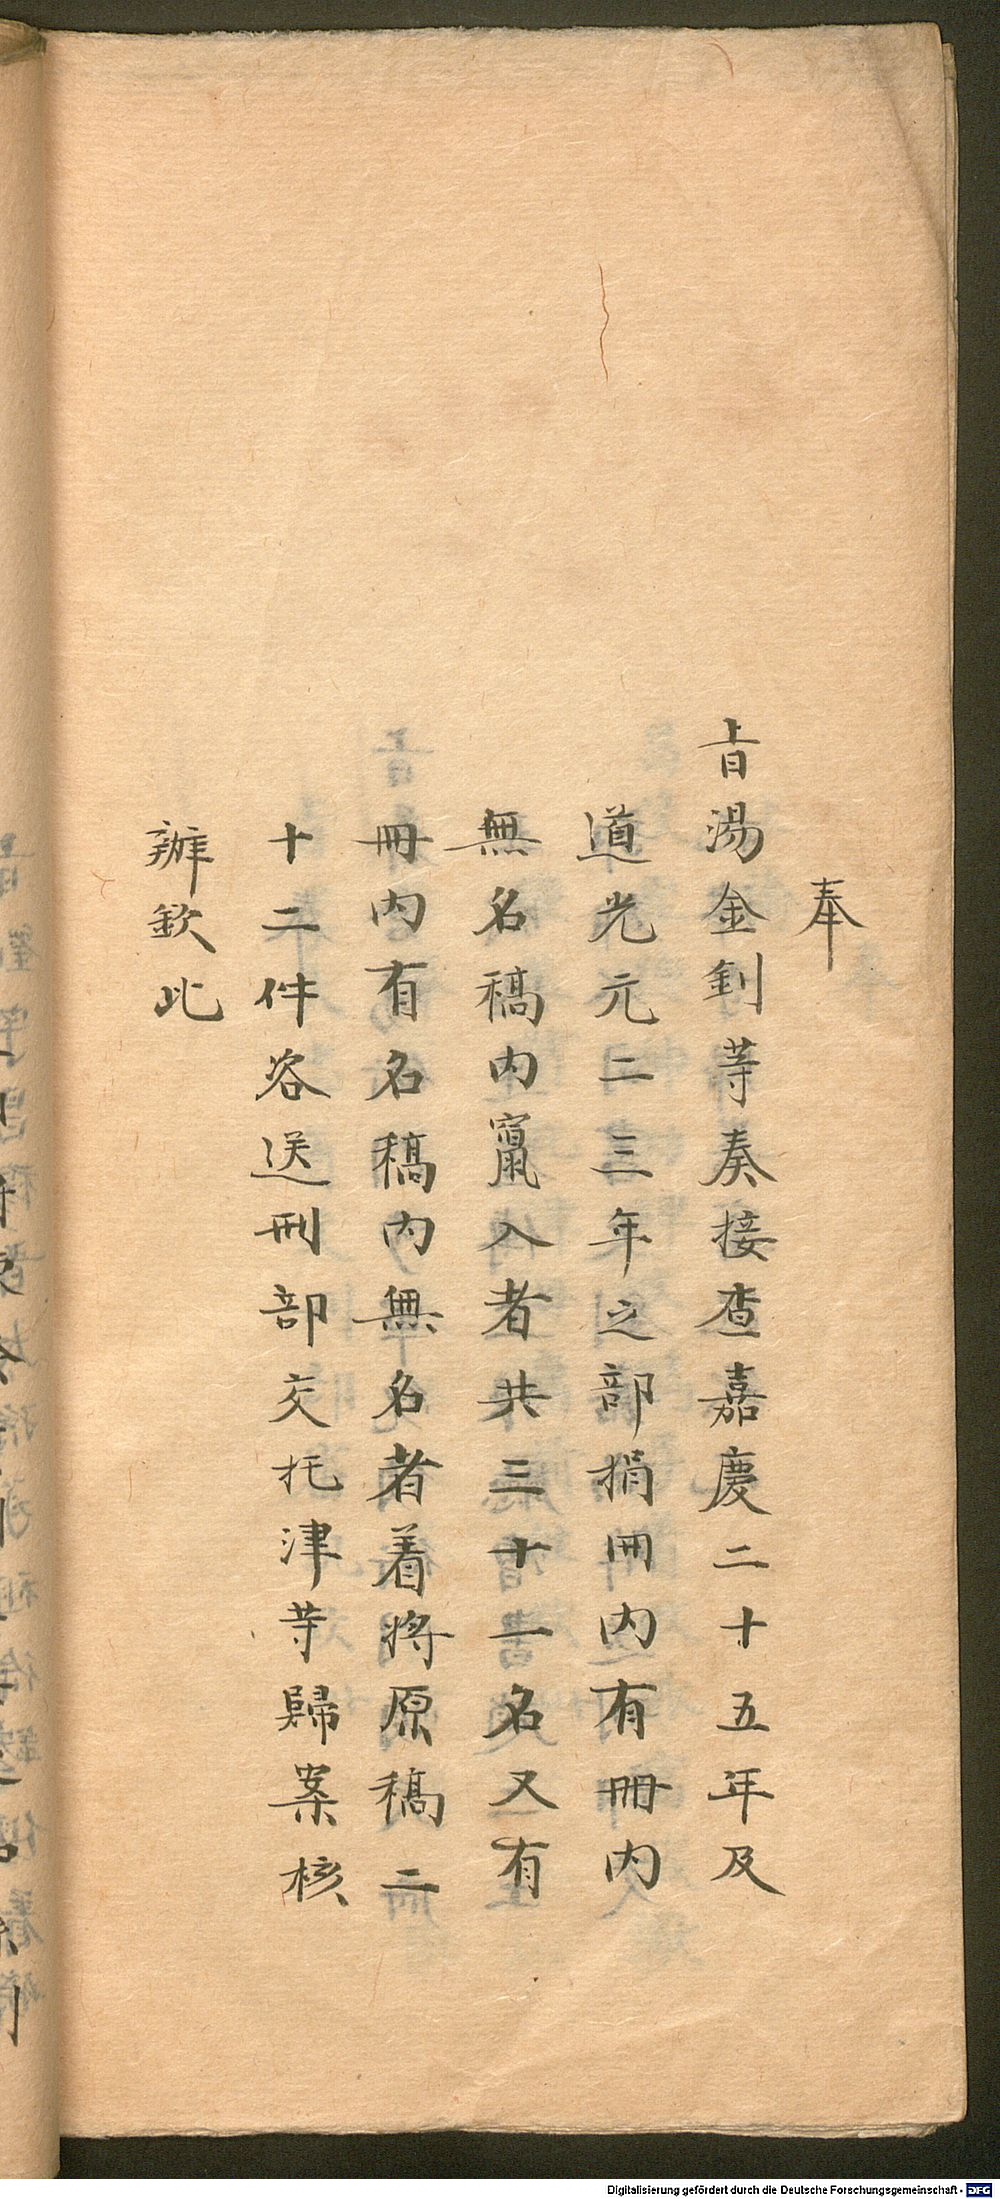 奉
旨湯金釗等奏接查嘉慶二十五年及
道光元二三年之部捐冊內有冊內
無名稿內竄入者共三十一名又有
冊內有名稿內無名者着將原稿二
十二件咨送刑部交托津等歸案核
辦欽此
Digitalisierung gefördert durch die Deutsche Forschungsgemeinschaft - DFG